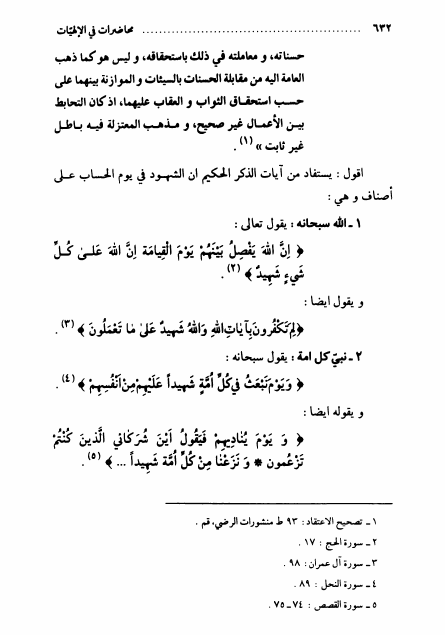 ٦٣٢ ........................................ محاضرات في الإلهيّات
حسناته، و معاملته في ذلك باستحقاقه، و ليس هو كما ذهب
العامة اليه من مقابلة الحسنات بالسيئات و الموازنة بينهما على
حسب استحقاق الثواب و العقاب عليهما، اذ كان التحابط
بين الأعمال غير صحيح، و مذهب المعتزلة فيه باطل
غير ثابت » (١) .
اقول : يستفاد من آيات الذكر الحكيم ان الشهود في يوم الحساب على
أصناف و هي :
١ ـ الله سبحانه : يقول تعالى :
﴿ إِنَّ اللهَ يَفْصِلُ بَيْنَهُمْ يَوْمَ الْقِيامَةِ إِنَّ اللهَ عَلىٰ كُلِّ
شَيْءٍ شَهِيدٌ ﴾ (٢) .
و يقول ايضا :
﴿لِمَ تَكْفُرُونَ بِآيَاتِ اللهِ وَاللهُ شَهِيدٌ عَلىٰ مَا تَعْمَلُونَ ﴾ (٣) .
٢ ـ نبيّ كل امة : يقول سبحانه :
﴿ وَيَوْمَ نَبْعَثُ فِي كُلِّ أُمَّةٍ شَهِيداً عَلَيْهِمْ مِنْ أَنْفُسِهِمْ ﴾ (٤) .
و يقوله ايضا :
﴿ وَ يَوْمَ يُنَادِيهِمْ فَيَقُولُ أَيْنَ شُرَكَائِي الَّذِينَ كُنْتُمْ
تَزْعُمون * وَ نَزَعْنَا مِنْ كُلِّ أُمَّة شَهِيداً ... ﴾ (٥) .
١ ـ تصحيح الاعتقاد : ٩٣ ط منشورات الرضي، قم .
٢ ـ سورة الحج : ١٧ .
٣ ـ سورة آل عمران : ٩٨ .
٤ ـ سورة النحل : ٨٩ .
٥ ـ سورة القصص : ٧٤ ـ ٧٥ .